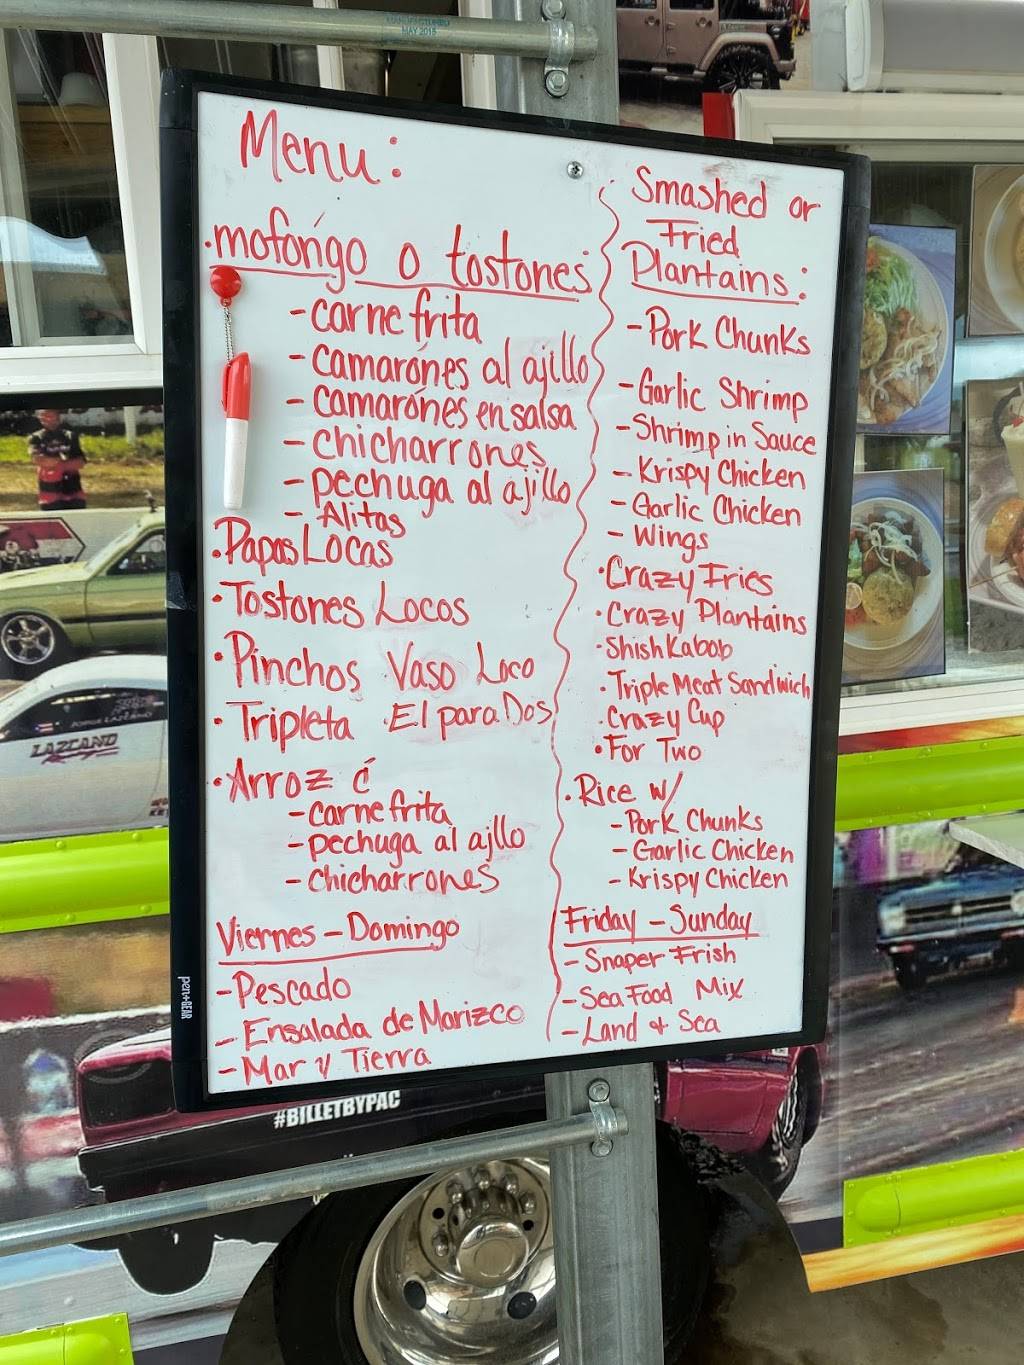 MANUFACTURED
MAY 2015
Menu:
• mofongo o tostones
- carne frita
- camarones al ajillo
- camarones en salsa
- chicharrones
- pechuga al ajillo
- Alitas
• Papas Locas
• Tostones Locos
• Pinchos Vaso Loco
• Tripleta • El para Dos
• Arroz c
- carne frita
- pechuga al ajllo
- chicharrones
Viernes - Domingo
- Pescado
- Ensalada de Marizco
- Mar y Tierra
Smashed or
Fried
Plantains:
- Pork Chunks
- Garlic Shrimp
- Shrimp in Sauce
- Krispy Chicken
- Garlic Chicken
- Wings
• Crazy Fries
• Crazy Plantains
• Shish Kabob
• Triple Meat Sandwich
• Crazy Cup
• For Two
• Rice w/
- Pork Chunks
- Garlic Chicken
- Krispy Chicken
Friday - Sunday
- Snaper Frish
- Sea Food Mix
- Land + Sea
pen+GEAR
LAZCANO
#BILLETBYPAC